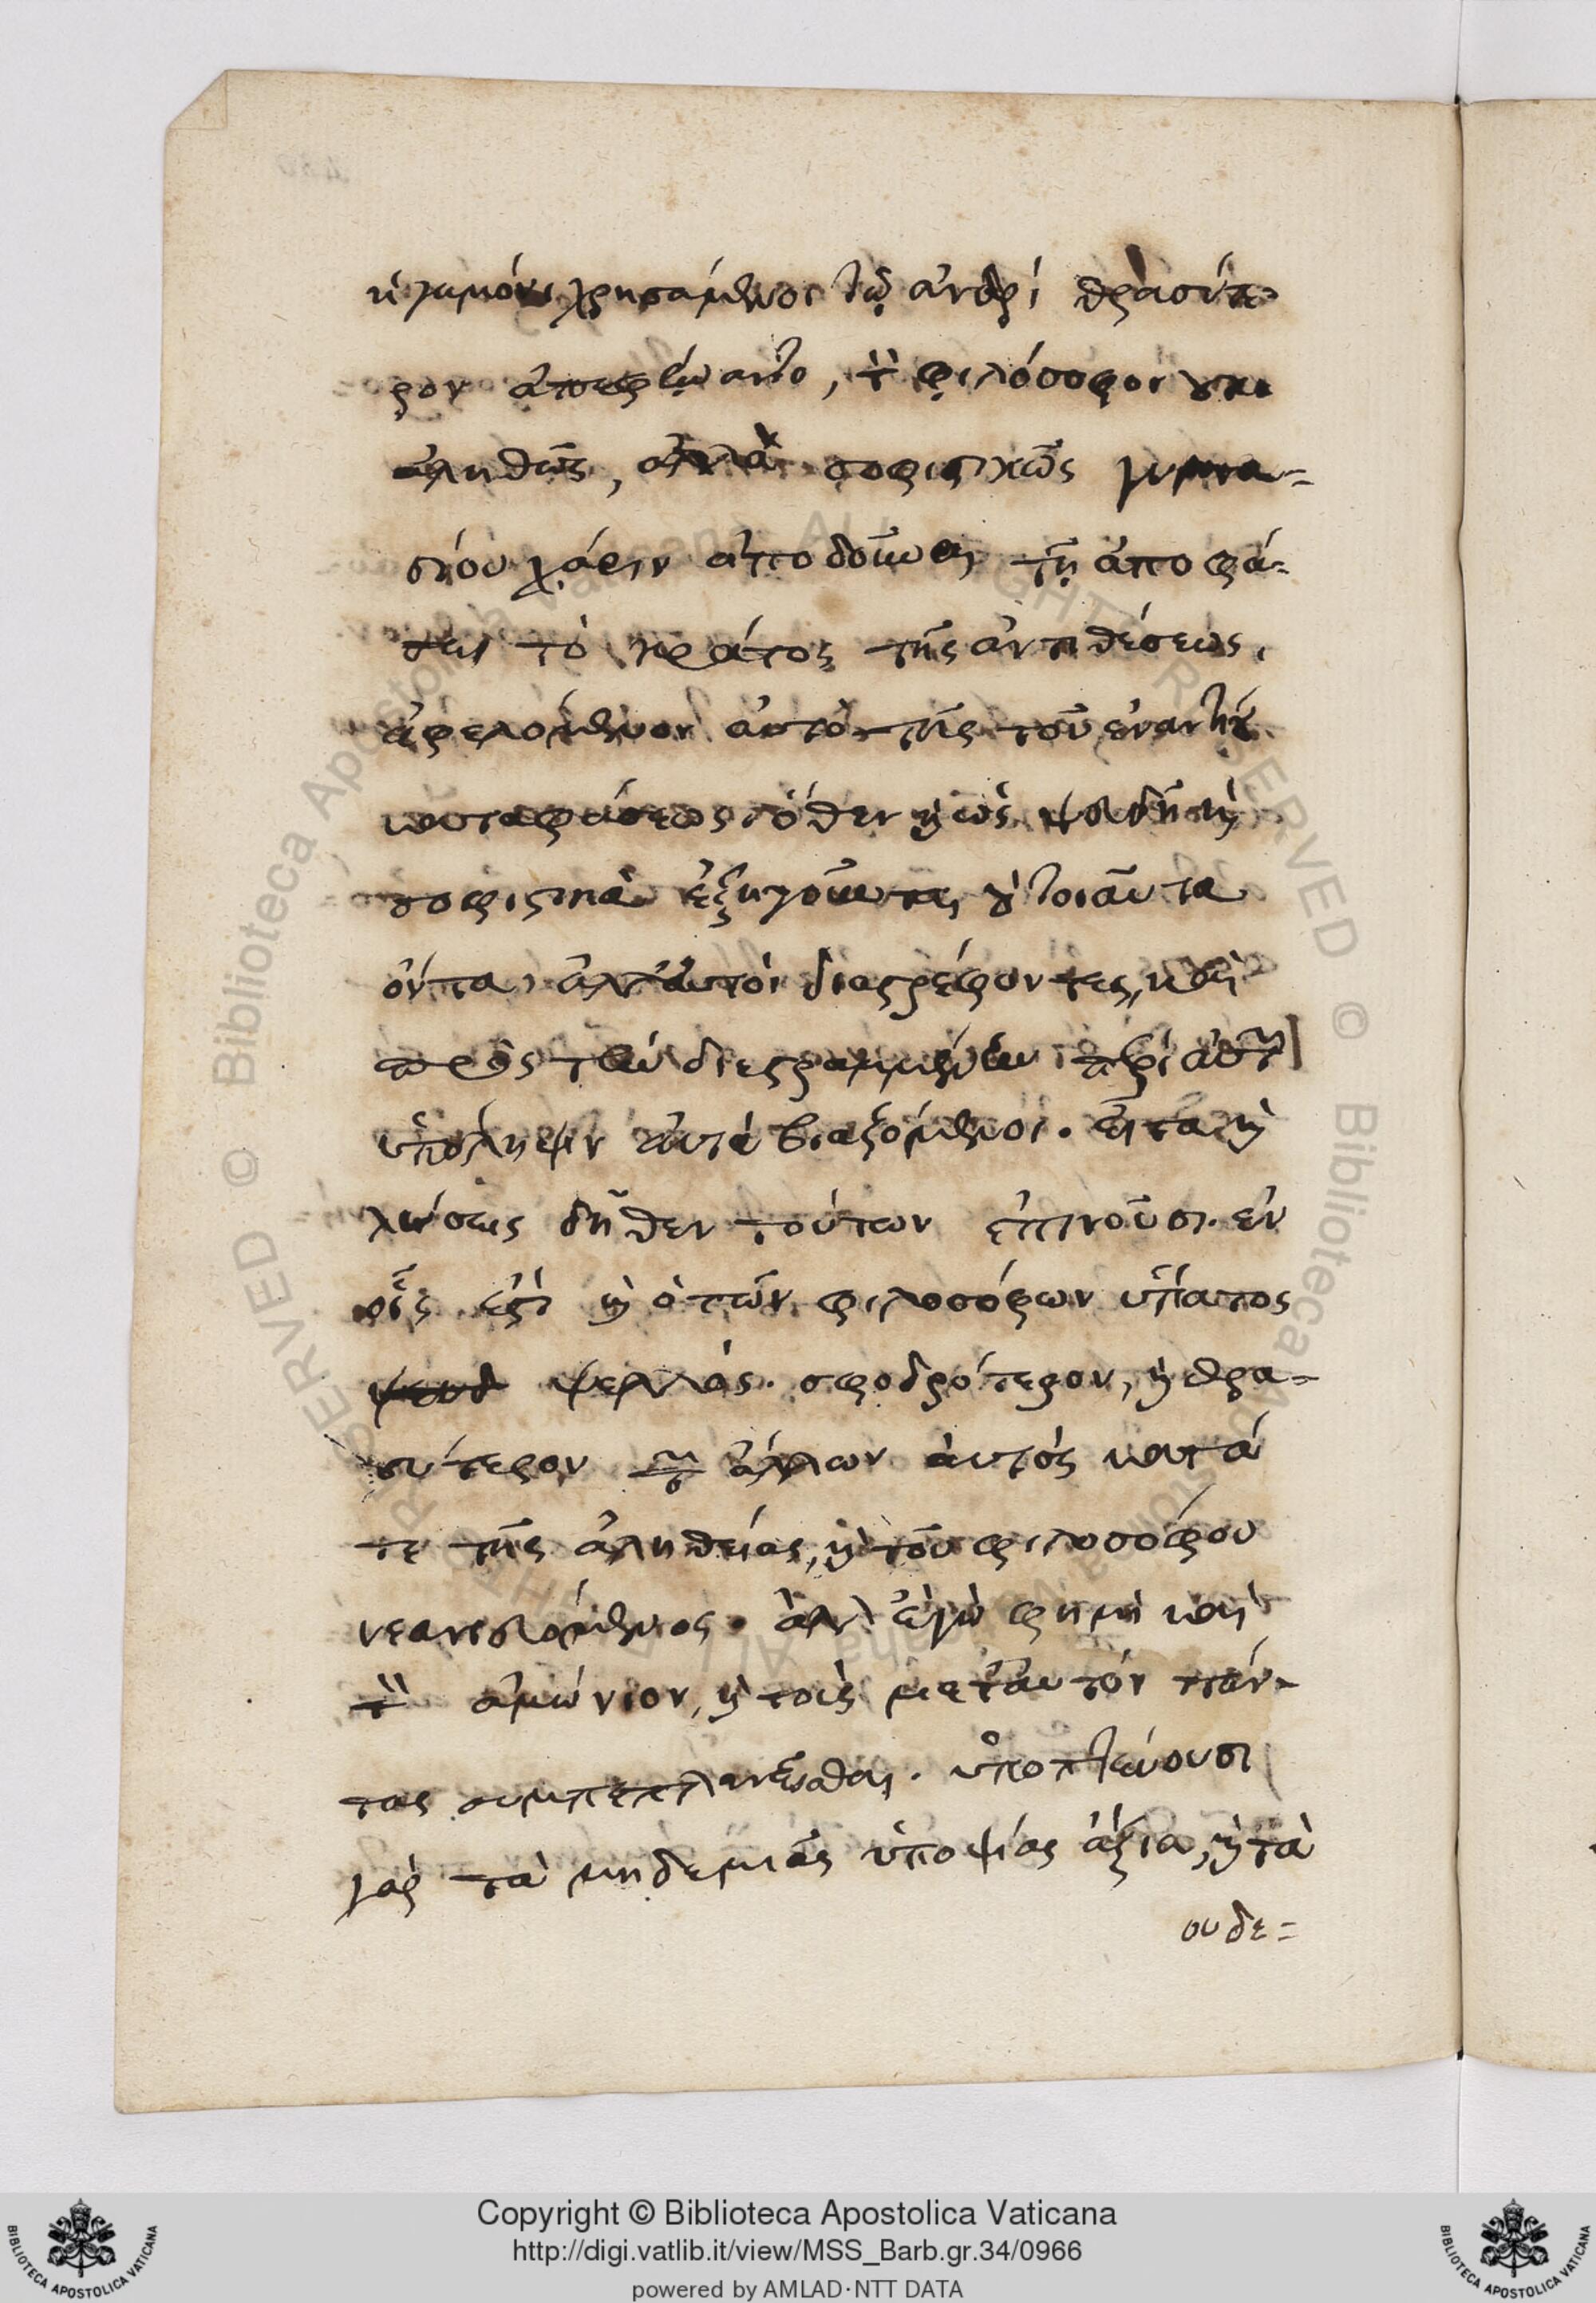 ἡγεμόνι χρησάμενοι τῷ ἀνδρὶ θρασύτε
ρον ἀπεφήναντο, τὸν φιλόσοφον οὐκ
ἀληθῶς, ἀλλὰ σοφιστικῶς γυμνα=
σίου χάριν ἀποδοῦναι τῇ ἀποφά=
σει τὸ κράτος τῆς ἀντιθέσεως,
ἀφελόμενον αὐτὸ τῆς τοῦ ἐναντίου
καταφάσεως· ὅθεν καὶ ὡς ψευδῆ καὶ
σοφιστικὰ ἐξηγοῦνται, οὐ τοιαῦτα
ὄντα, ἀλλ' αὐτοὶ διαστρέφοντες, καὶ
πρὸς τὴν διεστραμμένην περὶ αὐτῶν
ὑπόληψιν αὐτὰ βιαζόμενοι. εἶτα καὶ
λύσεις δῆθεν τούτων ἐπινοοῦσι. ἐν
οἷς ἐστὶ καὶ ὁ τῶν φιλοσόφων ὕπατος
ψευδ ψελλός. σφοδρότερον, καὶ θρα=
σύτερον τῶν ἄλλων αὐτὸς κατά
τε τῆς ἀληθείας, καὶ τοῦ φιλοσόφου
νεανιευόμενος. ἀλλ' ἐγὼ φημὶ καὶ
τὸν ἀμώνιον, καὶ τοὺς μετ' αὐτόν πάν=
τας συμπεπλανῆσθαι. ὑποπτεύουσι
γὰρ τὰ μηδεμιᾶς ὑποψίας ἄξια, καὶ τὰ
ουδε=
Copyright © Biblioteca Apostolica Vaticana
http://digi.vatlib.it/view/MSS_Barb.gr.34/0966
powered by AMLAD·NTT DATA